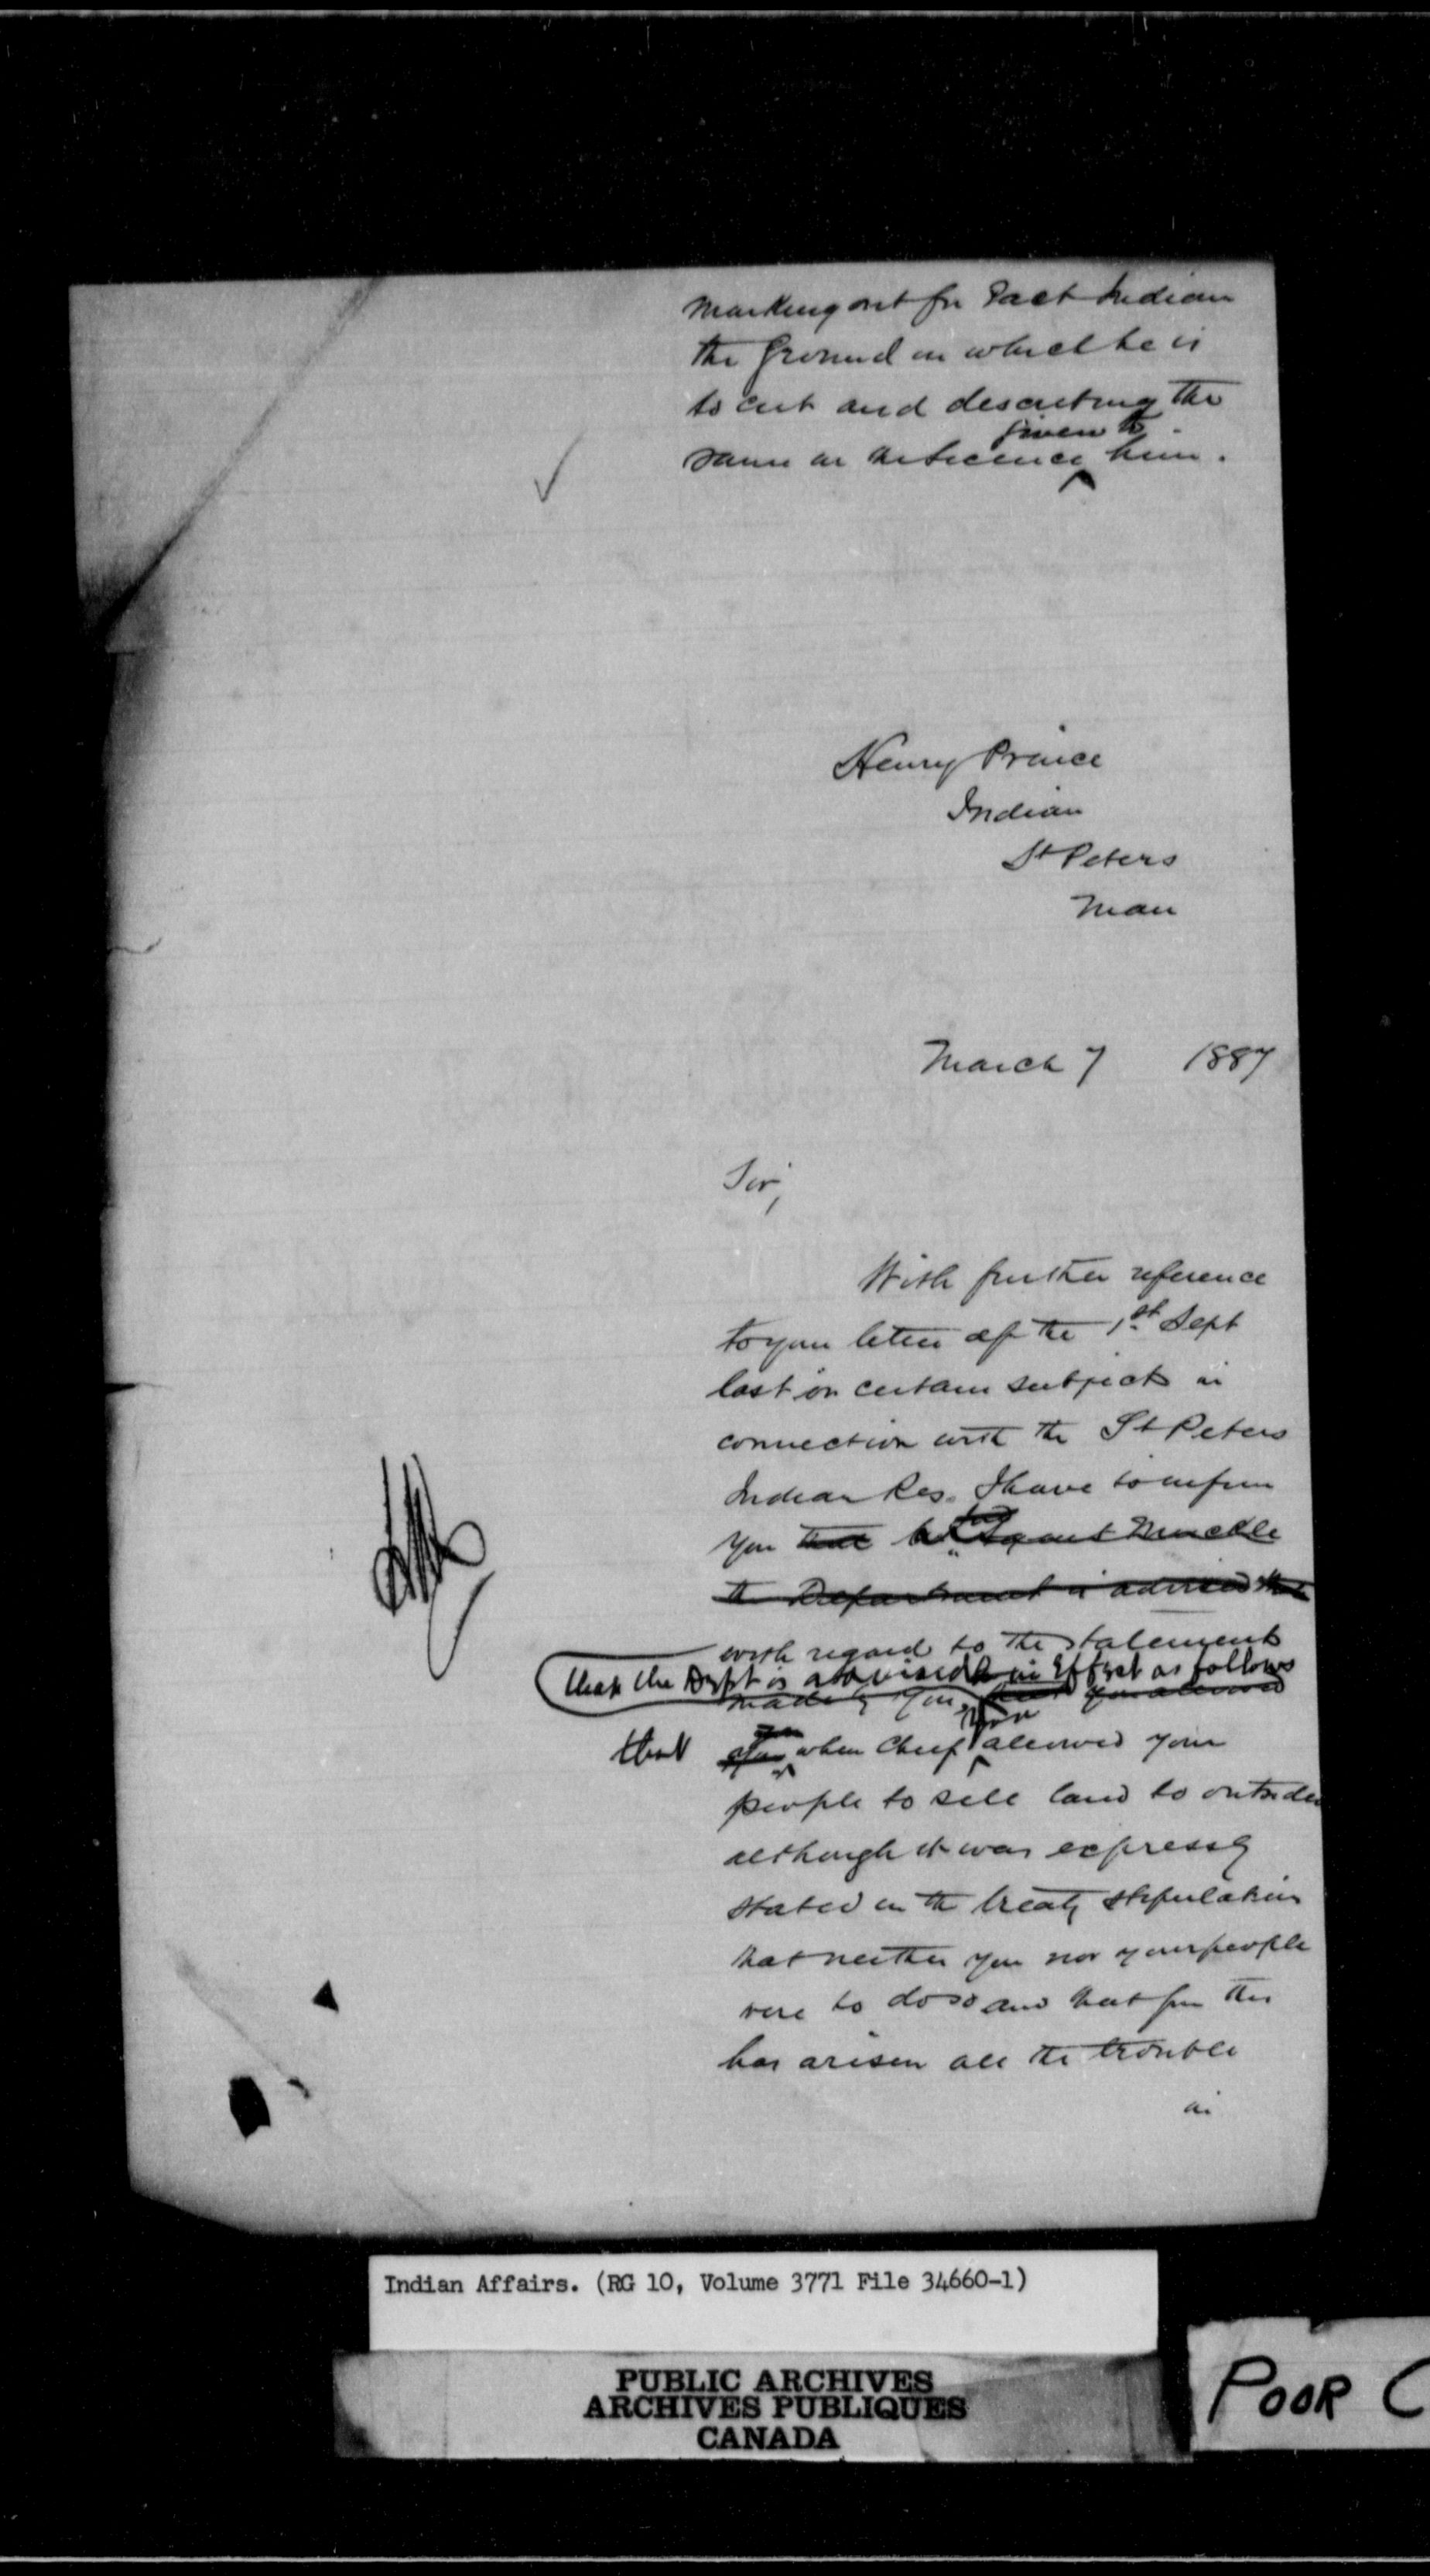 marking out for Each Indian
the ground on which he is
to cut and describing the
given to
same in the licence him.
Henry Prince
Indian
St Peters
Man
March 7 1887
Sir,
With further reference
to your letter of the 1st Sept
last on certain subjects in
connection with the St Peters
Indian Res. I have to inform
you that by Agent Muckle
the Department is advised that
with regard to the statements
that the Dept is advised in Effect as follows
made by you, that you allowed
you
that when Chief allowed your
people to sell land to outsiders
although it was expressly
stated in the treaty stipulations
that neither you nor your people
were to do so and that from this
has arisen all the trouble
in
Indian Affairs. (RG 10, Volume 3771 File 34660-1)
PUBLIC ARCHIVES
ARCHIVES PUBLIQUES
CANADA
POOR C